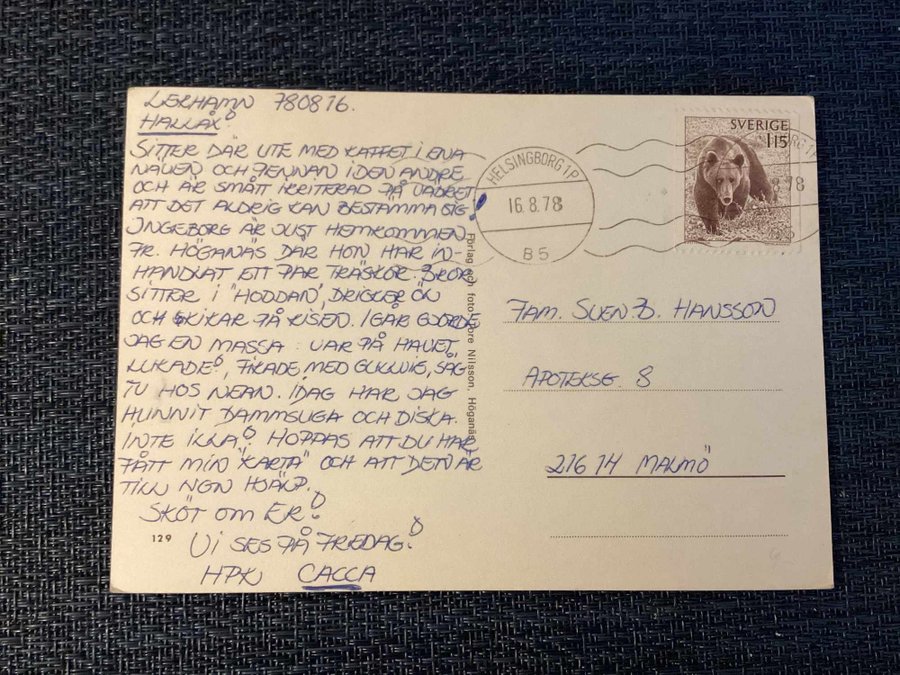 LERHAMN 780816.
HALLÅX!
SITTER DÄR UTE MED KAFFET I ENA
NÄVEN OCH PENNAN I DEN ANDRE
OCH ÄR SMÅTT IRRITERAD PÅ VÄDRET
ATT DET ALDRIG KAN BESTÄMMA SIG!
INGEBORG ÄR JUST HEMKOMMEN
FR. HÖGANÄS DÄR HON HAR IN-
HANDLAT ETT PAR TRÄSKOR. BROR
SITTER I "HODDAN", DRICKER ÖL
OCH KIKAR PÅ RISEN. IGÅR GJORDE
JAG EN MASSA: VAR PÅ HAVET
FIKADE MED SÅG
TV HOS NEAN. IDAG HAR JAG
HUNNIT DAMMSUGA OCH DISKA.
INTE ILLA! HOPPAS ATT DU HAR
FÅTT MIN "KARTA" OCH ATT DEN ÄR
TILL NGN HJÄLP.
SKÖT OM ER!
VI SES PÅ FREDAG!
HPK CACCA
129
Förlag och foto: Tore Nilsson, Höganäs
HELSINGBORG 1 P
16.8.78
B5
SVERIGE
115
FAM. SVEN B. HANSSON
APOTEKSG. 8
216 14 MALMÖ